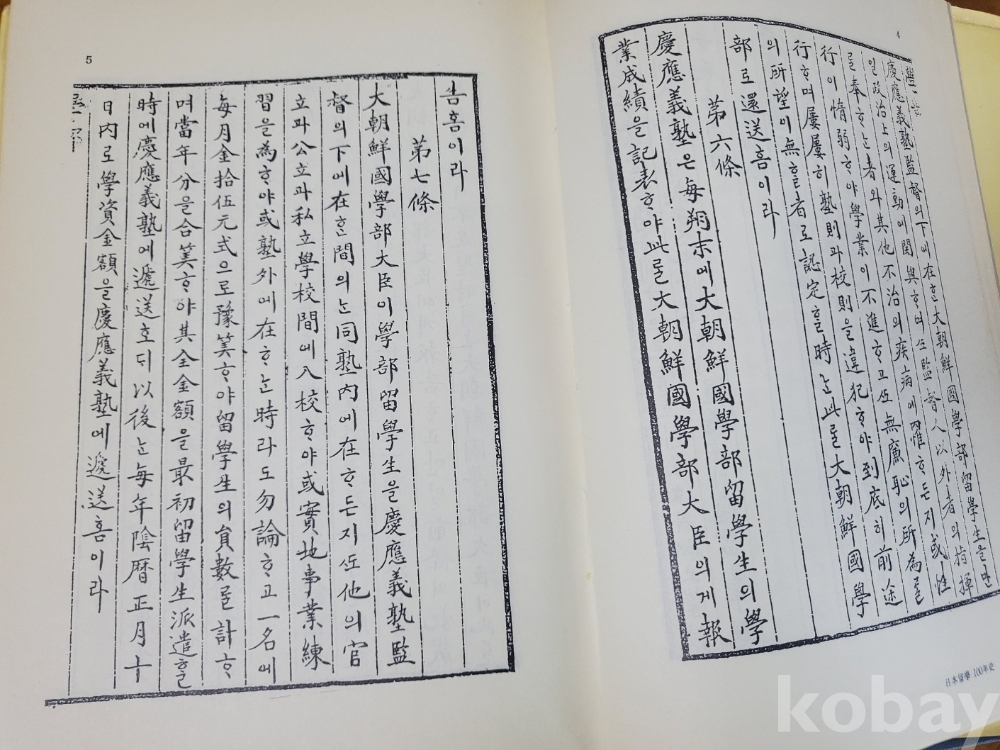 4
慶應義塾監督의下에在ᄒᆞᆫ大朝鮮國學部留學生을만
일政治上의運動에關與ᄒᆞ며ᄯᅩ監督人以外者의指揮
ᄅᆞᆯ奉ᄒᆞᄂᆞᆫ者와其他不治의疾病에罹ᄒᆞ든지或性
行이惰弱ᄒᆞ야學業이不進ᄒᆞ고ᄯᅩ無廉恥의所為ᄅᆞᆯ
行ᄒᆞ며屢屢히塾則과校則을違犯ᄒᆞ야到底히前途
의所望이無ᄒᆞᆯ者로認定ᄒᆞᆯ時ᄂᆞᆫ此ᄅᆞᆯ大朝鮮國學
部로還送홈이라
第六條
慶應義塾은每朔末에大朝鮮國學部留學生의學
業成績을記表ᄒᆞ야此ᄅᆞᆯ大朝鮮國學部大臣의게報
日本留學 100年史
5
告홈이라
第七條
大朝鮮國學部大臣이學部留學生을慶應義塾監
督의下에在ᄒᆞᆫ間의ᄂᆞᆫ同塾內에在ᄒᆞ든지ᄯᅩ他의官
立과公立과私立學校間에入校ᄒᆞ야或實地事業練
習을為ᄒᆞ야或塾外에在ᄒᆞᄂᆞᆫ時라도勿論ᄒᆞ고一名에
每月金拾伍元式으로豫筭ᄒᆞ야留學生의員數ᄅᆞᆯ計ᄒᆞ
며當年分을合筭ᄒᆞ야其全金額을最初留學生派遣ᄒᆞᆯ
時에慶應義塾에遞送호ᄃᆡ以後ᄂᆞᆫ每年陰曆正月十
日內로學資金額을慶應義塾에遞送홈이라
kobay